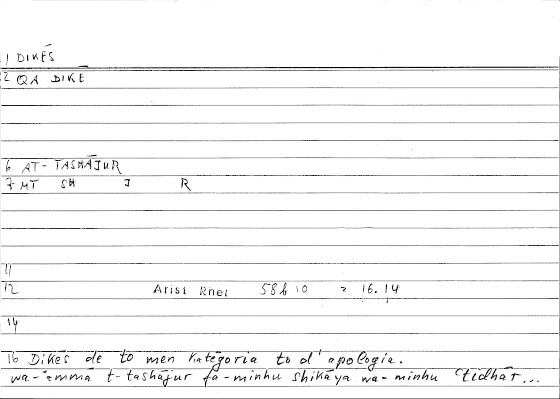 1 DIKĒS
2 QA DIKĒ
6 AT-TASHĀJUR
7 MT SH J R
11
12 Arist Rhet 58b10 = 16.14
14
16 Dikēs de to men katēgoria to d'apologia.
wa-'ammā t-tashājur fa-minhu shikāya wa-minhu 'tidhār...